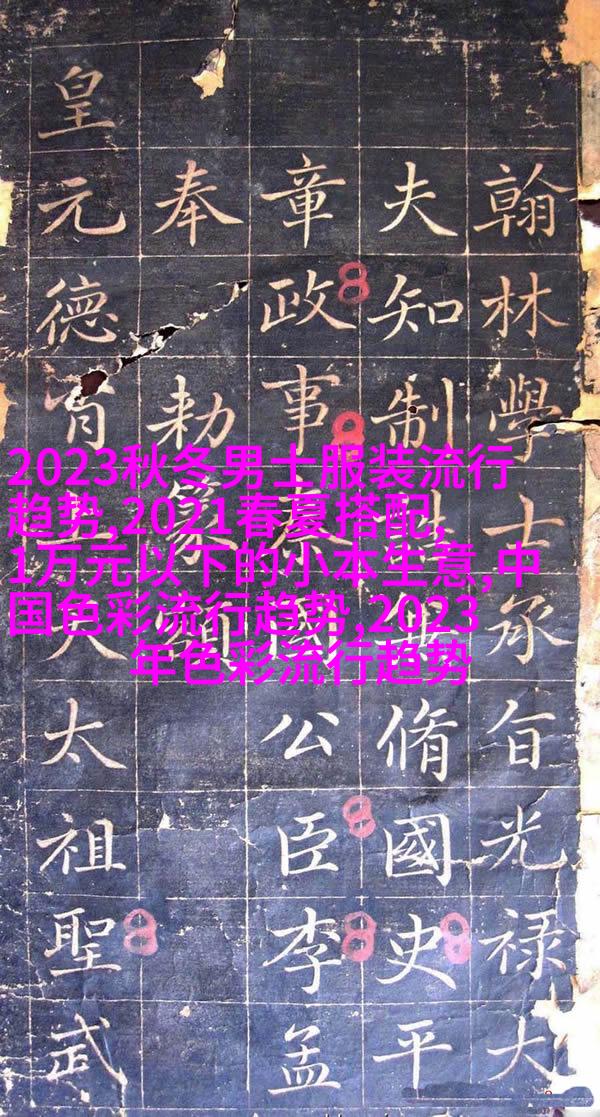 翰林學士承旨光禄大
夫知制誥兼脩國史平
章政事秦國公臣李孟
奉勅篆額
皇元德天太祖聖武
2023秋冬男士服装流行
趋势,2021春夏搭配,
1万元以下的小本生意,中
国色彩流行趋势,2023
年色彩流行趋势